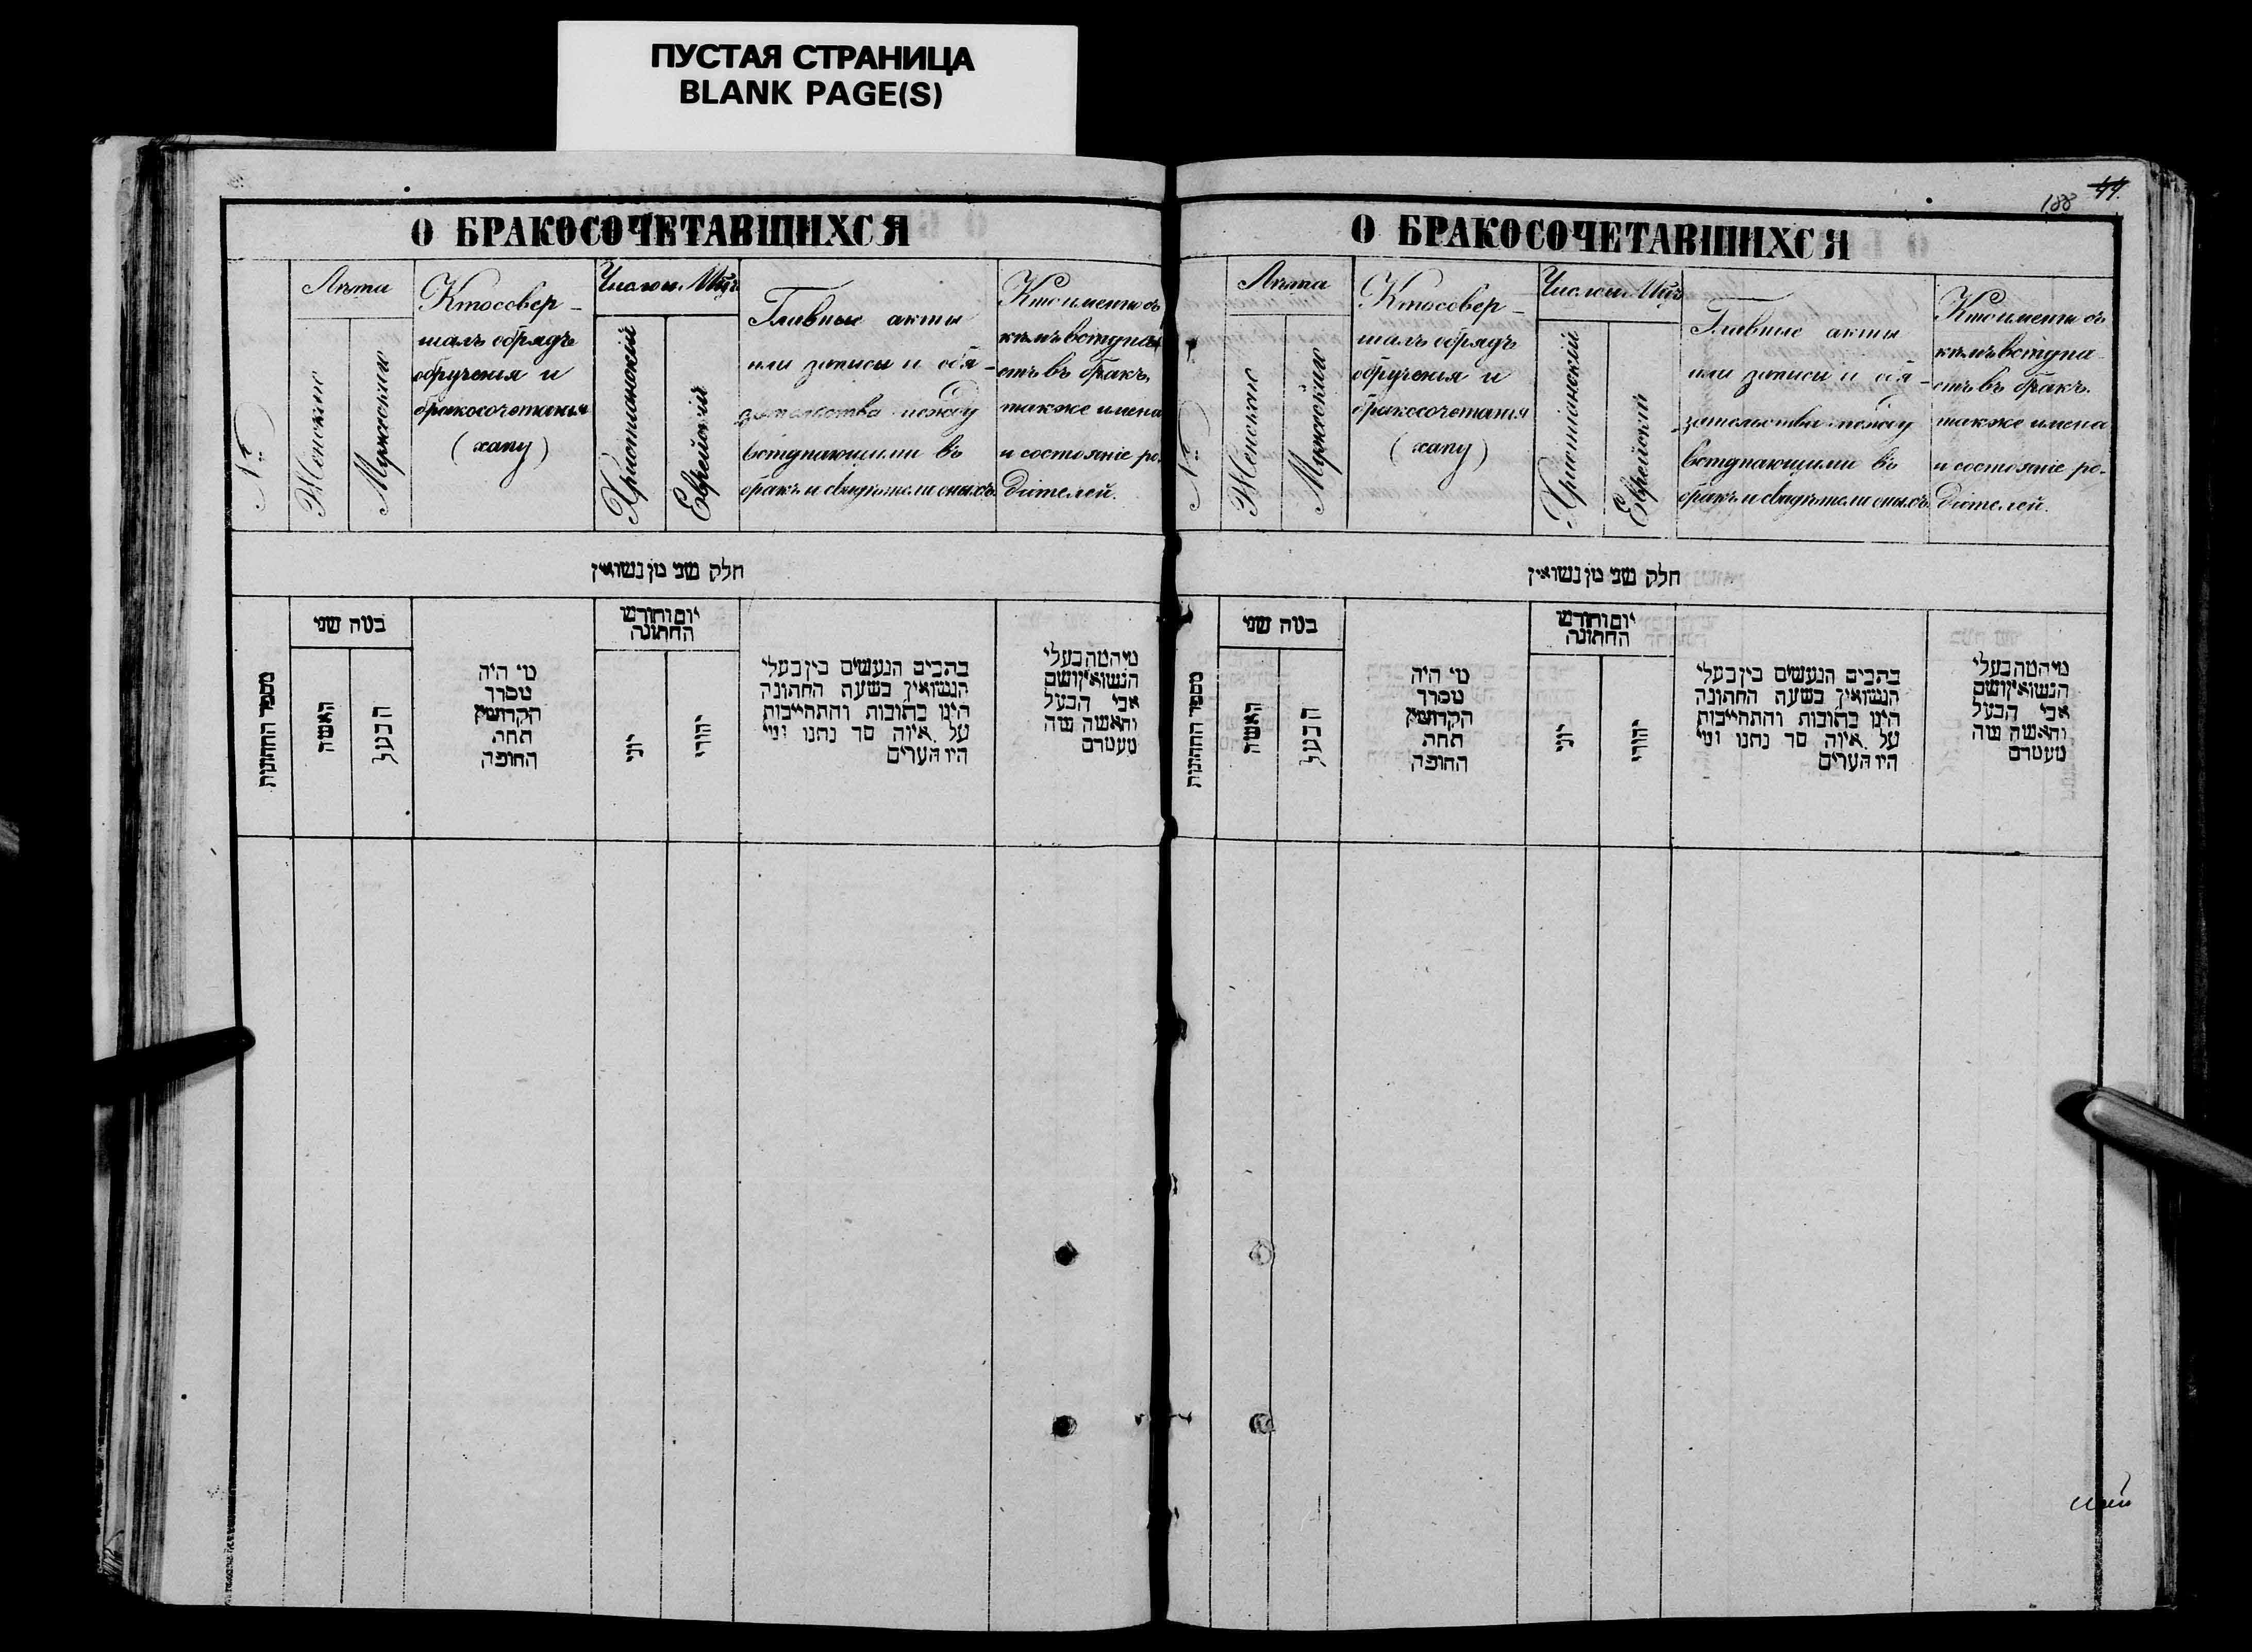 ПУСТАЯ СТРАНИЦА
BLANK PAGE(S)
О БРАКОСОЧЕТАВШИХСЯ
№
Лѣта
Женскаго
Мужескаго
Кто совер-
шалъ обрядъ
обрученія и
бракосочетанія
(хапу)
Число и Мѣц:
Христіанскій
Еврейскій
Главные акты
или записи и обя-
зательства между
вступающими въ
бракъ и свидѣтели оныхъ.
Кто именно съ
кѣмъ вступа
етъ въ бракъ,
также имена
и состояніе ро-
дителей.
חלק שני מן נשואין
מספר החתונות
כמה שני
האשה
הבעל
מי היה
מסדר
הקדושין
תחת
החופה
יום וחודש
החתונה
יוני
יהודי
כתבים הנעשים בין בעלי
הנשואין בשעת החתונה
היינו כתובות והתחייבות
על איזה סך נתנו ומי
היו העדים
מי המה בעלי
הנשואין ושם
אבי הבעל
והאשה ומה
מעמדם
188 44.
О БРАКОСОЧЕТАВШИХСЯ
№
Лѣта
Женскаго
Мужескаго
Кто совер-
шалъ обрядъ
обрученія и
бракосочетанія
(хапу)
Число и Мѣц:
Христіанскій
Еврейскій
Главные акты
или записи и обя-
зательства между
вступающими въ
бракъ и свидѣтели оныхъ.
Кто именно съ
кѣмъ вступа
етъ въ бракъ.
также имена
и состояніе ро-
дителей.
חלק שני מן נשואין
מספר החתונות
כמה שני
האשה
הבעל
מי היה
מסדר
הקדושין
תחת
החופה
יום וחודש
החתונה
יוני
יהודי
כתבים הנעשים בין בעלי
הנשואין בשעת החתונה
היינו כתובות והתחייבות
על איזה סך נתנו ומי
היו העדים
מי המה בעלי
הנשואין ושם
אבי הבעל
והאשה ומה
מעמדם